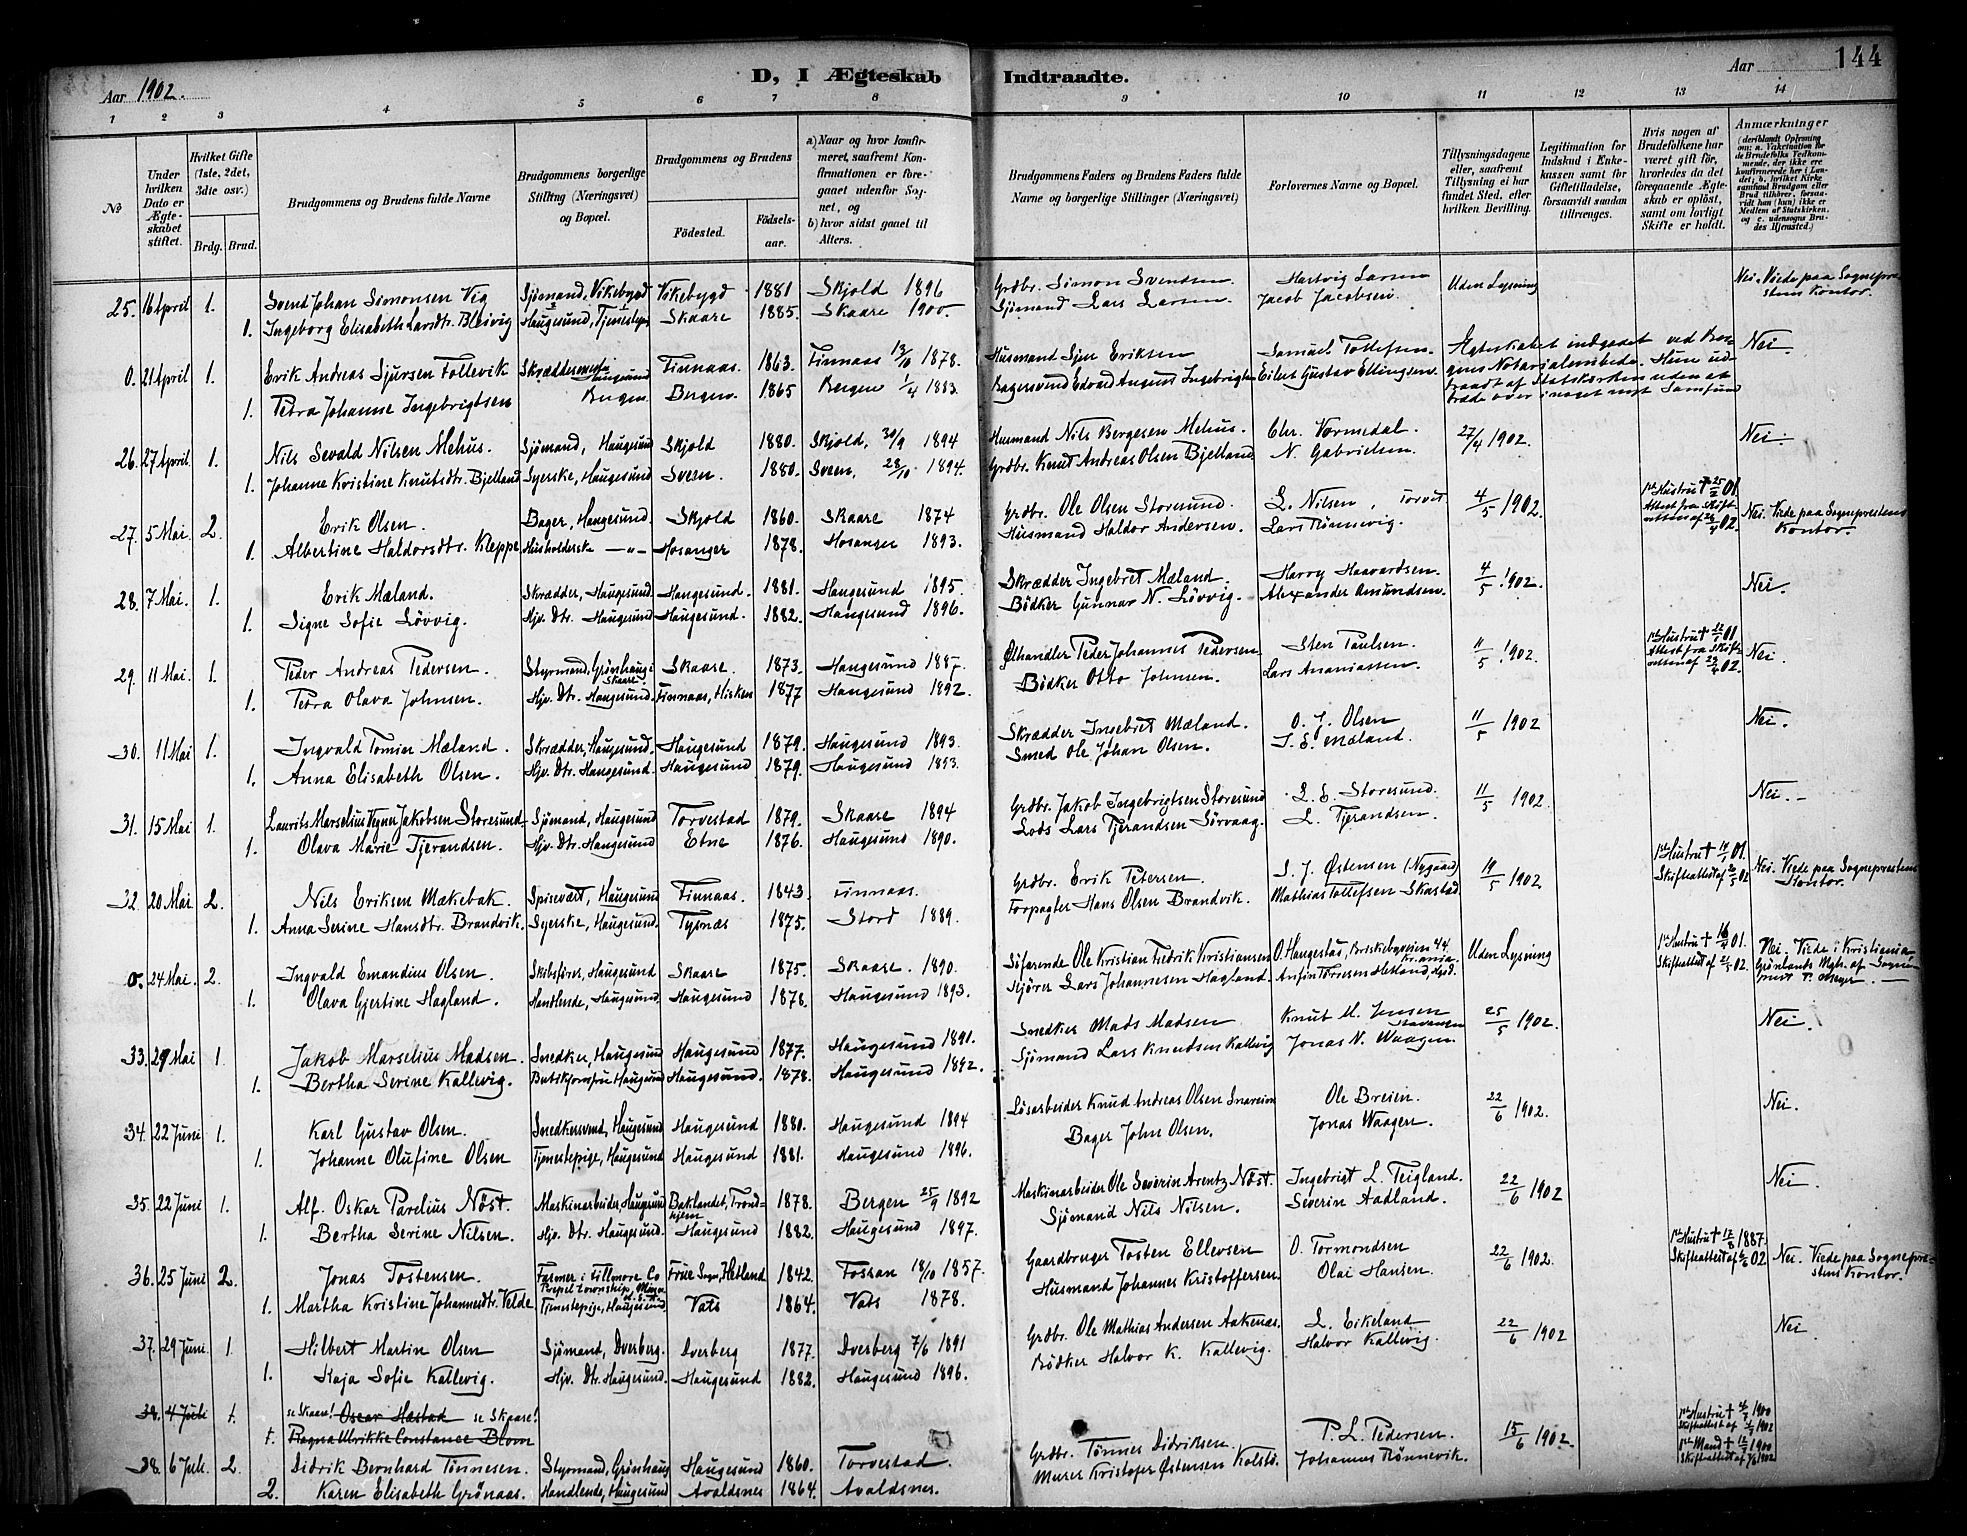 Aar 1902.
D, I Ægteskab Indtraadte.
Aar
144
1 2 3 4 5 6 7 8 9 10 11 12 13 14
No
Under hvilken Dato er Ægteskabet stiftet.
Hvilket Gifte (1ste, 2det, 3die osv.)
Brdg. Brud.
Brudgommens og Brudens fulde Navne
Brudgommens borgerlige Stilling (Næringsvei) og Bopæl.
Brudgommens og Brudens
Födested.
Födselsaar.
a) Naar og hvor konfirmeret, saafremt Konfirmationen er foregaaet udenfor Sognet, og
b) hvor sidst gaaet til Alters.
Brudgommens Faders og Brudens Faders fulde Navne og borgerlige Stillinger (Næringsvei)
Forlovernes Navne og Bopæl.
Tillysningsdagene eller, saafremt Tillysning ei har fundet Sted, efter hvilken Bevilling.
Legitimation for Indskud i Enkekassen samt for Giftetilladelse, forsaavidt saadan tiltrænges.
Hvis nogen af Brudefolkene har været gift för, hvorledes da det foregaaende Ægteskab er oplöst, samt om lovligt Skifte er holdt.
Anmærkninger (deriblandt Oplysning om: a. Vakcination for de Brudefolks Vedkommende, der ikke ere konfirmerede her i Landet; b. hvilket Kirkesamfund Brudgom eller Brud tilhører, forsaavidt han (hun) ikke er Medlem af Statskirken, og c. udensogns Brudes Hjemsted.)
25. 16 April 1. Svend Johan Simonsen Vig Sjömand, Vikebygd Vikebygd 1881 Skjold 1896 Grdbr. Simon Svendsen Hartvig Larsen Uden Lysning Nei. Viede paa Sogneprestens Kontor.
1. Ingeborg Elisabeth Larsdtr. Bleivig Haugesund, Tjenestep. Skaare 1885. Skaare 1900. Sjömand Lars Larsen Jacob Jacobsen.
0. 21 April 1. Erik Andreas Sjursen Follevik Skræddermester Haugesund Finnaas. 1863. Finnaas 13/10 1878. Husmand Sjur Eriksen Samuel Tollefsen. Ægteskabet indgaaet ved Bergens Notarialembede. Hun udtraadt af Statskirken uden at træde over i noget nyt Samfund Nei.
1. Petra Johanne Ingebrigtsen Bergen. Bergen. 1865 Bergen 1/4 1883. Bagersvend Edvard August Ingebrigtsen Eilert Gustav Ellingsen.
26. 27 April. 1. Nils Sevald Nilsen Mehus. Sjömand, Haugesund Skjold 1880. Skjold, 30/9 1894 Husmand Nils Bergesen Mehus. Chr. Vormedal. 27/4 1902. Nei
1. Johanne Kristine Knutsdtr. Bjelland Syerske, Haugesund Sveen. 1880. Sveen, 28/10 1894. Grdbr. Knut Andreas Olsen Bjelland N. Gabrielsen.
27. 5 Mai. 2. Erik Olsen. Bager, Haugesund. Skjold 1860. Skaare 1874 Grdbr. Ole Olsen Storesund. L. Nilsen, Torvet 4/5 1902. 1st Hustru † 25/2 01. Attest fra Skifteretten af 02. Nei. Viede paa Sogneprestens Kontor.
1. Albertine Haldorsdtr. Kleppe Husholderske —"— Hosanger 1878. Hosanger 1893. Husmand Haldor Andersen. Lars Rönnevig.
28. 7 Mai. 1. Erik Mæland. Skrædder, Haugesund. Haugesund. 1881. Haugesund 1895. Skrædder Ingebret Mæland. Harry Haavardsen. 4/5 1902. Nei.
1. Signe Sofie Lövvig. Hjv. Dtr. Haugesund Haugesund. 1882. Haugesund 1896. Bödker Gunnar N. Lövvig. Alexander Amundsen.
29. 11 Mai. 1. Peder Andreas Pedersen. Styrmand, Grönhaug Skaare Skaare. 1873. Haugesund 1887. Ølhandler Peder Johannes Pedersen Sten Paulsen. 11/5 1902. 1st Hustru † 01 Attest fra Skifteretten af 02. Nei.
1. Petra Olava Johnsen. Hjv. Dtr. Haugesund. Finnaas, Hisken 1877 Haugesund 1892. Bödker Otto Johnsen. Lars Ananiassen.
30. 11 Mai 1. Ingvald Tomier Mæland. Skrædder, Haugesund. Haugesund 1879. Haugesund 1893. Skrædder Ingebret Mæland. O. J. Olsen 11/5 1902 Nei.
1. Anna Elisabeth Olsen. Hjv. Dtr. Haugesund. Haugesund 1879. Haugesund 1893. Smed Ole Johan Olsen. I. E. Mæland.
31. 15 Mai 1. Laurits Marselius Vegner Jakobsen Storesund. Sjömand, Haugesund Torvestad 1879. Skaare 1894 Grdbr. Jakob Ingebrigtsen Storesund L. E. Storesund. 11/5 1902. Nei. —
1. Olava Marie Tjerandsen. Hjv. Dtr. Haugesund Etne 1876. Haugesund 1890. Lods Lars Tjerandsen Sörvaag. L. Tjerandsen.
32. 20 Mai 2. Nils Eriksen Mækebak. Spisevært, Haugesund Finnaas. 1843. Finnaas. Grdbr. Erik Petersen. S. J. Østensen (Nygaard) 19/5 1902 1st Hustru † 01. Skifteattest af 02 Nei. Viede paa Sogneprestens Kontor.
1. Anna Serine Hansdtr. Brandvik. Syerske, Haugesund Tysnæs 1875. Stord 1889. Forpagter Hans Olsen Brandvik. Mathias Tollefsen Skastad
0. 24 Mai. 2. Ingvald Emandius Olsen. Skibsförer, Haugesund Skaare 1875. Skaare. 1890. Söfarende Ole Kristian Fredrik Kristiansen O. Haugestas, Briskebyveien 44. Kr.ania. Uden Lysning 1st Hustru † 01. Skifteattest af 02. Nei. Viede i Kristiania Grönlands Mgh. af Sogneprest P. Meyer. —
1. Olava Gjertine Hagland. Handlende, Haugesund Haugesund 1878. Haugesund 1893. Skjører Lars Johannesen Hagland. Anfin Torresen Hetland, Hgsd.
33. 29 Mai 1. Jakob Marselius Madsen. Snedker, Haugesund Haugesund 1877. Haugesund 1891. Snedker Mads Madsen Knut M. Jensen Stavanger 25/5 1902. Nei.
1. Bertha Serine Kallevig. Butikjomfru Haugesund Haugesund. 1878. Haugesund 1892. Sjömand Lars Knudsen Kallevig Jonas N. Waagen.
34. 22 Juni 1. Karl Gustav Olsen. Snedkersvend, Haugesund Haugesund 1880. Haugesund 1894 Lösarbeider Knud Andreas Olsen Snareim Ole Breien. 22/6 1902. Nei.
1. Johanne Olufine Olsen Tjenestepige, Haugesund Haugesund 1881. Haugesund 1896. Bager John Olsen. Jonas Waagen.
35. 22 Juni 1. Alf. Oskar Parelius Nöst. Maskinarbeider, Haugesund Baklandet, Trondhjem 1878. Bergen 25/9 1892 Maskinarbeider Ole Severin Arentz Nöst. Ingebrigt L. Teigland. 22/6 1902 Nei.
1. Bertha Serine Nilsen. Hjv. Dtr. Haugesund. Haugesund 1882. Haugesund 1897. Sjömand Nils Nilsen. Severin Aadland.
36. 25 Juni 2. Jonas Tostensen. Farmer i Fillmore Co Township, Minn. Frue Sogn, Hetland 1842. Fossan 18/10 1857. Gaardbruger Tosten Ellevsen O. Tormondsen 22/6 1902. 1st Hustru † 12/8 1887. Skifteattest af 02 Nei. Viede paa Sogneprestens Kontor.
1. Martha Kristine Johannesdtr. Velde Tjenestepige, Haugesund Vats 1864. Vats 1878. Husmand Johannes Kristoffersen. Olai Hansen.
37. 29 Juni. 1. Hilbert Martin Olsen Sjömand, Dverberg. Dverberg 1877. Dverberg 7/6 1891 Grdbr. Ole Mathias Andersen Aakenæs. L. Eikeland 22/6 1902 Nei
1. Kaja Sofie Kallevig. Hjv. Dtr. Haugesund. Haugesund 1882. Haugesund 1896. Bödker Halvor K. Kallevig. Halvor Kallevig.
38. 4 Juli 1. se Skaare! Oscar Hæstad se Skaare!
1. Ragna Ulrikke Constance Blom
38. 6 Juli. 2. Didrik Bernhard Tönnesen. Styrmand, Grönhaug Haugesund 1860. Torvestad. Grdbr. Tönnes Didriksen. P. L. Pedersen. 15/6 1902. 1st Hustru † 1900 Skifteattest af 1902
2. Karen Elisabeth Grönaas. Handlende, Haugesund Avaldsnes 1864. Avaldsnes. Murer Kristofer Østensen Kolstö. Johannes Rönnevik. 1st Mand † 1900 Skifteattest af 1902